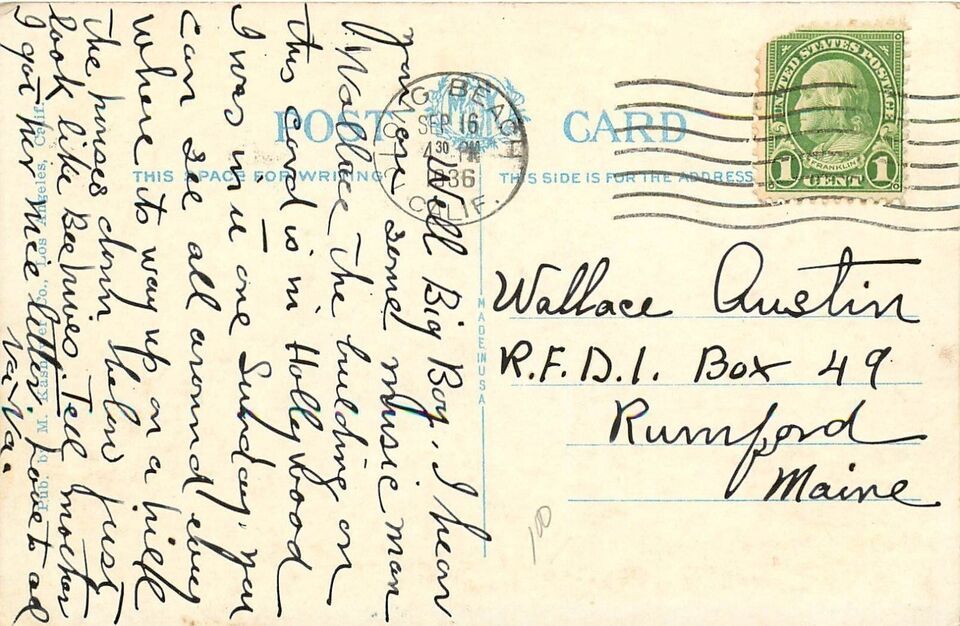 POST CARD
THIS SPACE FOR WRITING
THIS SIDE IS FOR THE ADDRESS
LONG BEACH
SEP 16
4 30 PM
1936
CALIF.
UNITED STATES POSTAGE
FRANKLIN
1 CENT 1
Well Big Boy, I hear
you are some music man
Wallace. The building on
this card is in Hollywood
I was in it one Sunday. you
can see all around every
where its way up on a hill
the houses down below just
look like Bee hives. Tell mother
I got her nice letter. love to all
Va. Va.
Wallace Austin
R.F.D.1. Box 49
Rumford
Maine
MADE IN USA
Pub. by M. Kashower Co., Los Angeles, Calif.
100